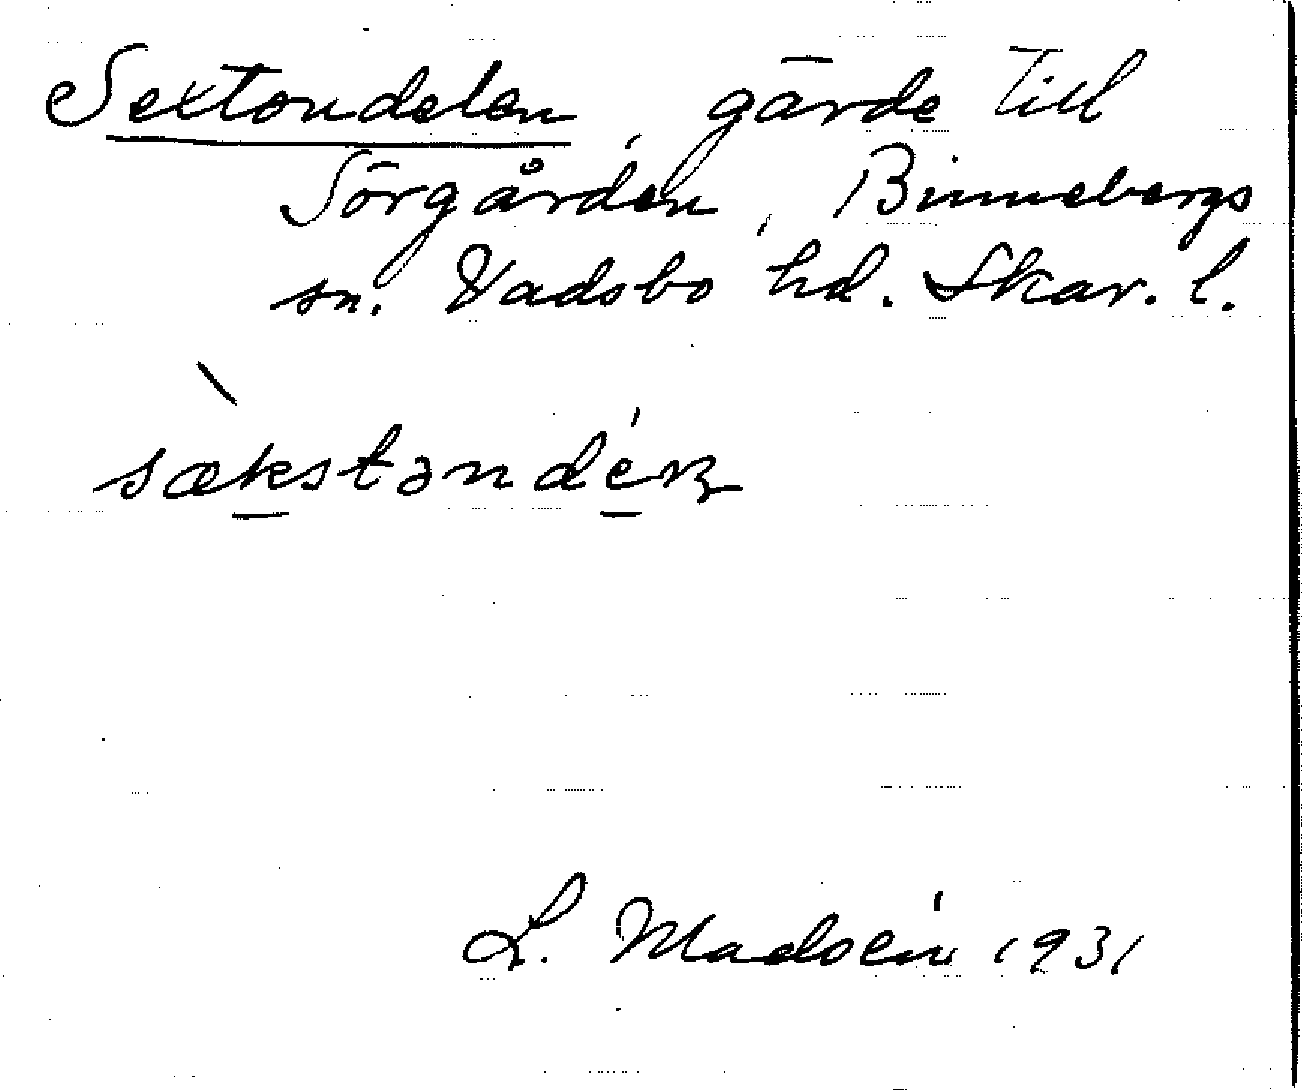 Sextondelen, gärde till
Sörgården, Binnebergs
sn. Vadsbo hd. Skar. l.
sækstəndén
L. Madsén 1931